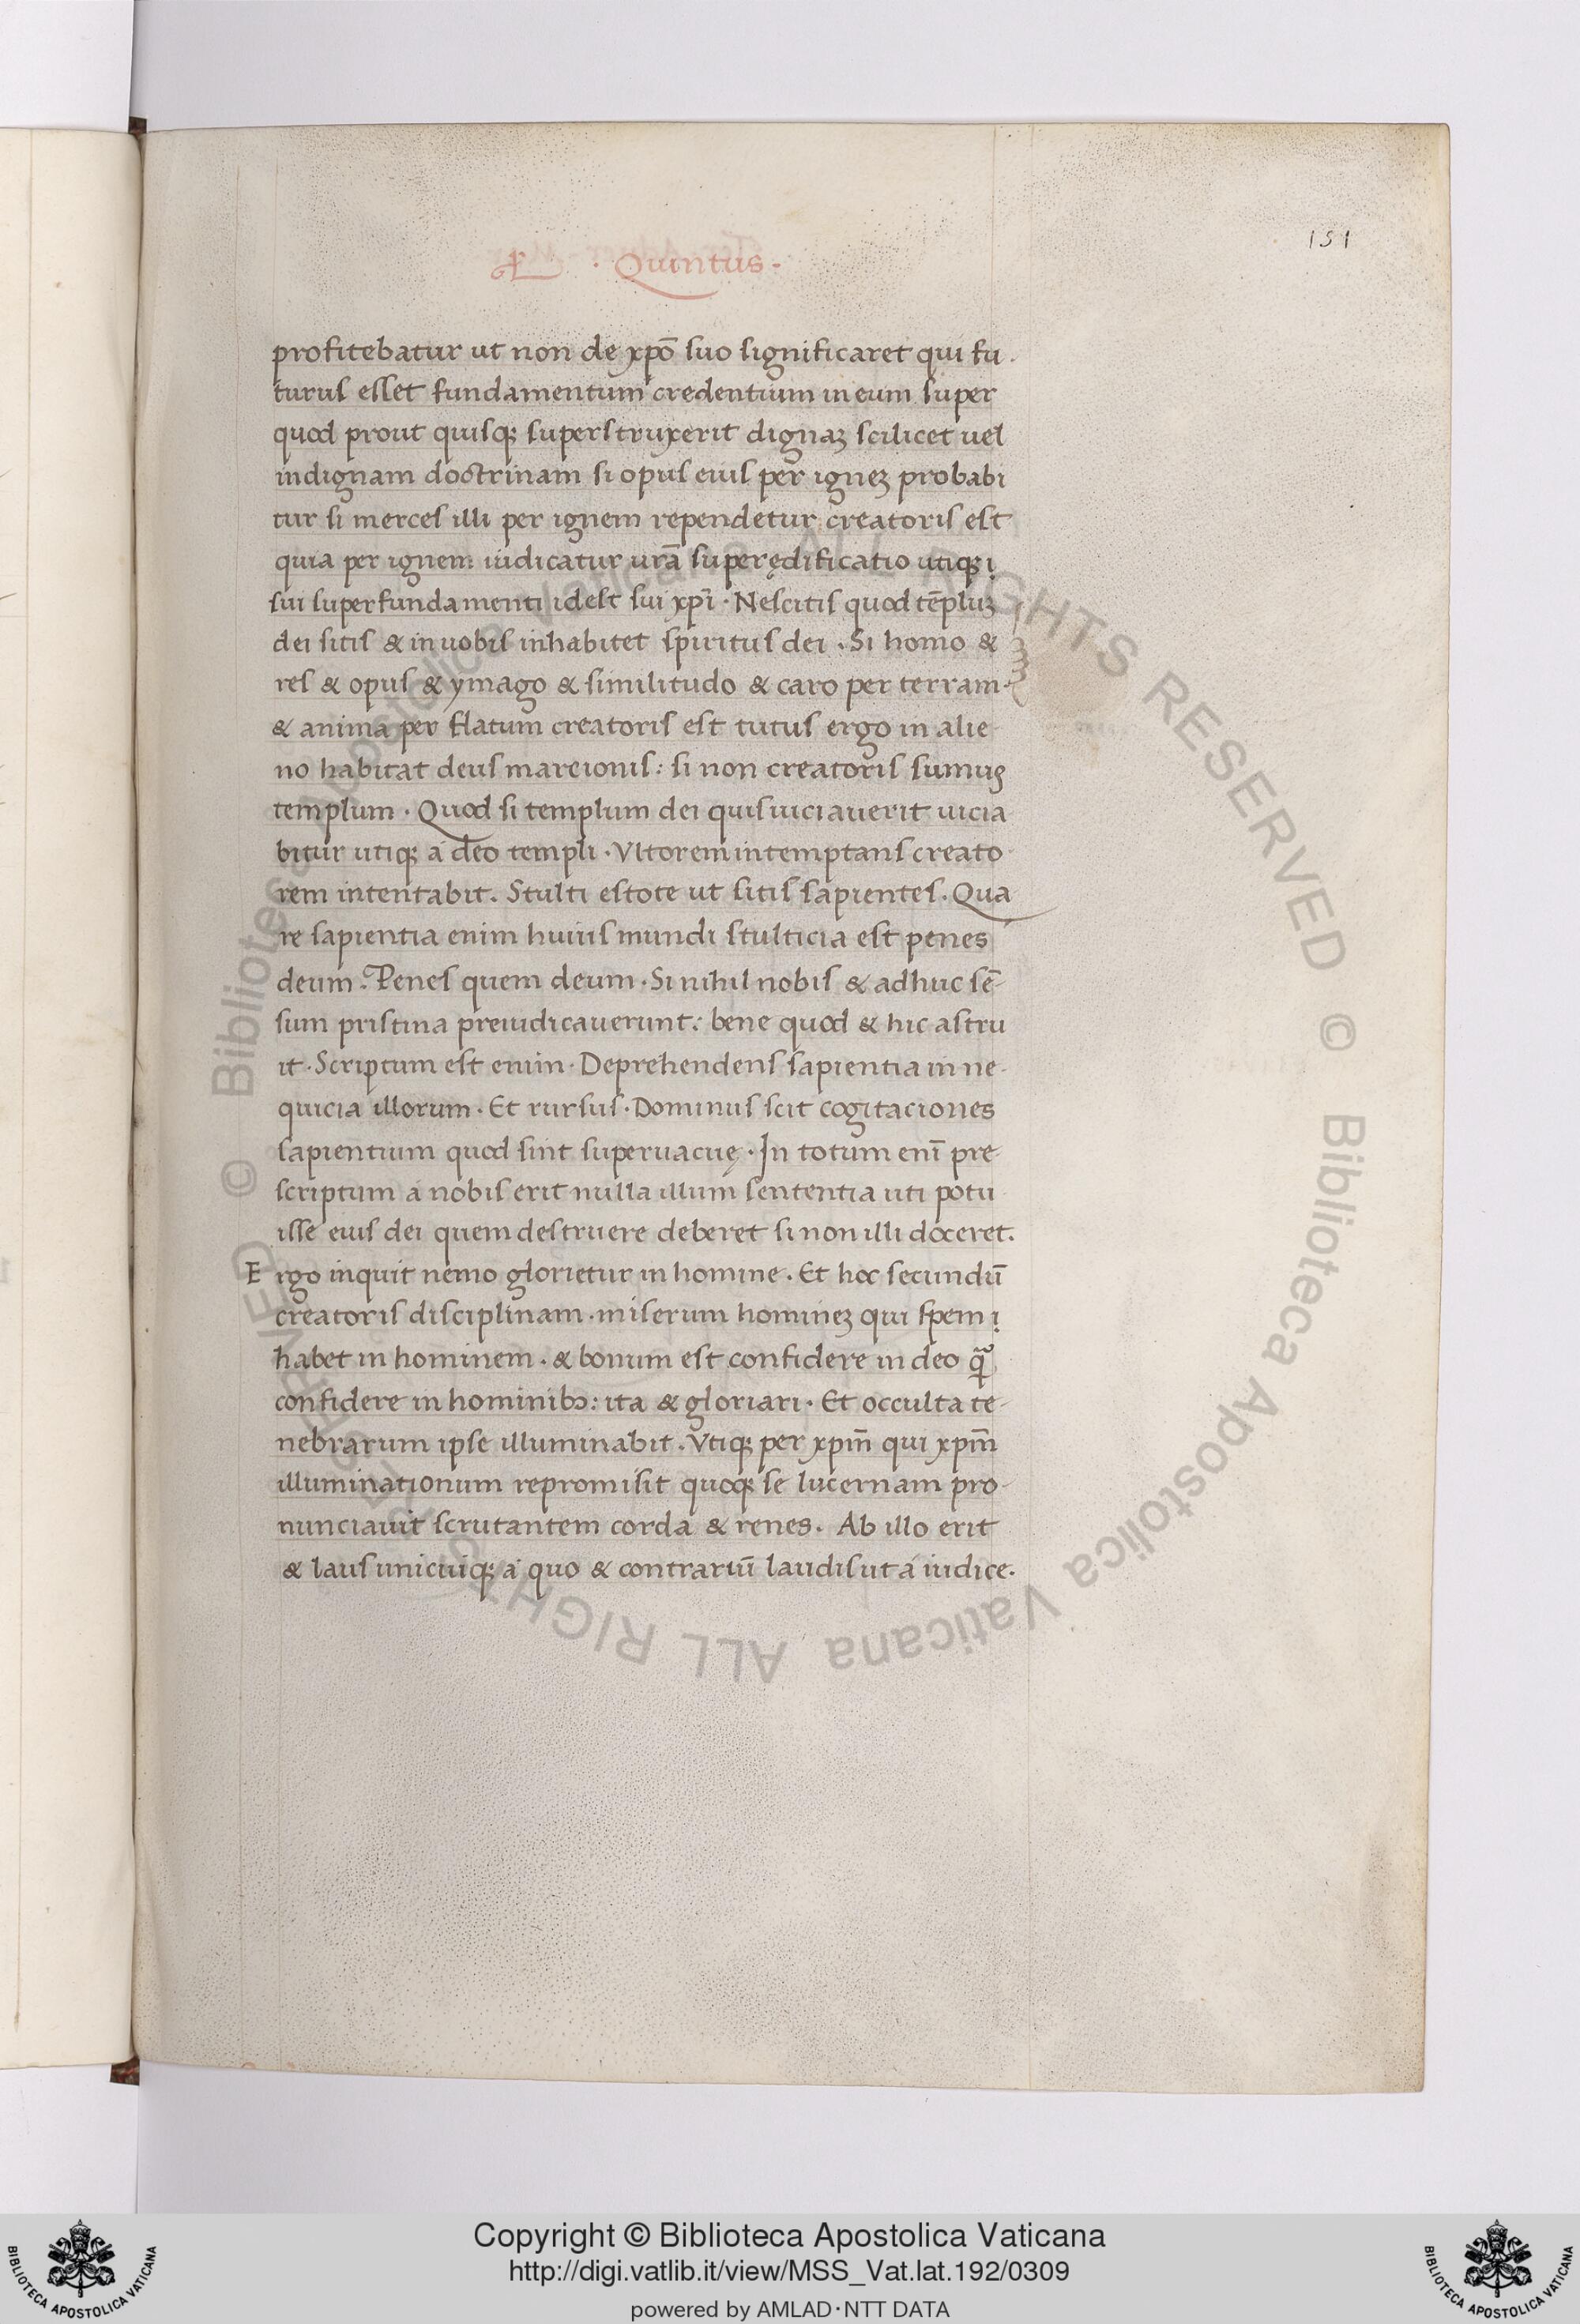 151
· Quintus ·
profitebatur ut non de xpō suo significaret qui fu
turus esset fundamentum credentium in eum super
quod prout quisqꝫ superstruxerit dignaꝫ scilicet uel
indignam doctrinam si opus eius per igneꝫ probabi
tur si merces illi per ignem rependetur creatoris est
quia per ignem iudicatur urā superędificatio utiqꝫ ị
sui superfundamenti idest sui xpī · Nescitis quod tēpluꝫ
dei sitis & in uobis inhabitet spiritus dei · Si homo &
res & opus & ymago & similitudo & caro per terram ·
& anima per flatum creatoris est tutus ergo in alie
no habitat deus marcionis: si non creatoris sumus
templum · Quod si templum dei quis uiciauerit uicia
bitur utiqꝫ á deo templi · Vltorem intemptans creato
rem intentabit. Stulti estote ut sitis sapientes. Qua
re sapientia enim huius mundi stulticia est penes
deum. Penes quem deum · Si nihil nobis & adhuc sē-
sum pristina preiudicauerunt: bene quod & hic astru
it · Scriptum est enim · Deprehendens sapientia in ne-
quicia illorum · Et rursus · Dominus scit cogitaciones
sapientium quod sint superuacuę · In totum enī pre
scriptum á nobis erit nulla illum sententia uti potu
isse eius dei quem destruere deberet si non illi doceret.
Ergo inquit nemo glorietur in homine. Et hoc secundū
creatoris disciplinam · miserum homineꝫ qui spem ị
habet in hominem · & bonum est confidere in deo qᷓ
confidere in hominibꝫ: ita & gloriari · Et occulta te-
nebrarum ipse illuminabit. Vtiqꝫ per xpm̄ qui xpm̄
illuminationum repromisit quoqꝫ se lucernam pro-
nunciauit scrutantem corda & renes. Ab illo erit
& laus unicuiqꝫ á quo & contrariū laudis ut á iudice.
© Biblioteca Apostolica Vaticana ALL RIGHTS RESERVED © Biblioteca Apostolica Vaticana ALL RIGHTS RESERVED
Copyright © Biblioteca Apostolica Vaticana
http://digi.vatlib.it/view/MSS_Vat.lat.192/0309
powered by AMLAD·NTT DATA
BIBLIOTECA APOSTOLICA VATICANA
BIBLIOTECA APOSTOLICA VATICANA